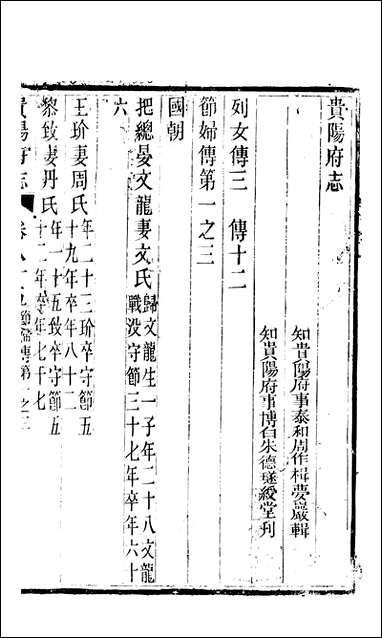 貴陽府志
知貴陽府事泰和周作楫夢巖輯
知貴陽府事博白朱德璲綬堂刊
列女傳三 傳十二
節婦傳第一之三
國朝
把總晏文龍妻文氏歸文龍生一子年二十八文龍
戰没守節三十七年卒年六十
六
王玠妻周氏年二十三玠卒守節五
十九年卒年八十二
黎致妻丹氏年二十五致卒守節五
十二年卒年七十七
貴陽府志 節婦傳第一之三